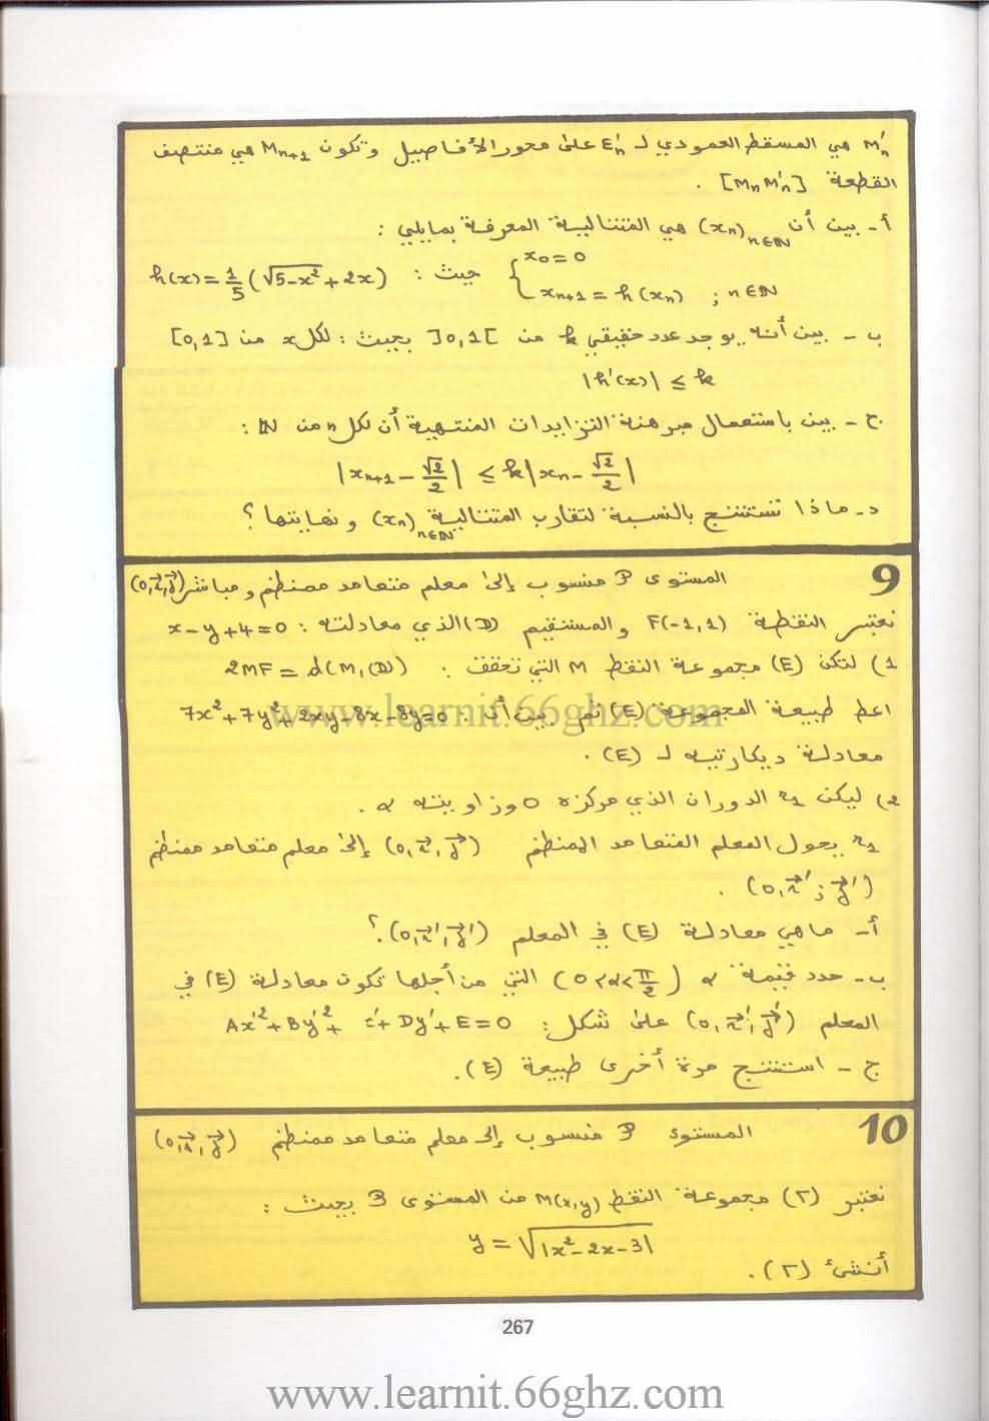 M'ₙ هي المسقط العمودي لـ E'ₙ على محور الأفاصيل وتكون Mₙ₊₁ هي منتصف
القطعة [MₙM'ₙ] .
أ - بين أن (xₙ)ₙ∈ℕ هي المتتالية المعرفة بمايلي :
{ x₀=0 ; xₙ₊₁ = h(xₙ) ; n∈ℕ حيث : h(x)=1/5(√(5-x²)+2x)
ب - بين أنه يوجد عدد حقيقي k من ]0,1[ بحيث : لكل x من [0,1]
|h'(x)| ≤ k
ج - بين باستعمال مبرهنة التزايدات المنتهية أن لكل n من ℕ :
|xₙ₊₁ - √2/2| ≤ k|xₙ - √2/2|
د - ماذا تستنتج بالنسبة لتقارب المتتالية (xₙ)ₙ∈ℕ و نهايتها ؟
9
المستوى P منسوب إلى معلم متعامد ممنظم و مباشر (o,i⃗,j⃗)
نعتبر النقطة F(-1,1) والمستقيم (D) الذي معادلته : x-y+4=0
1) لتكن (E) مجموعة النقط M التي تحقق : 2MF = d(M,(D))
اعط طبيعة المجموعة (E) ثم بين أن : 7x²+7y²+2xy-8x-8y=0
معادلة ديكارتية لـ (E) .
2) ليكن r₁ الدوران الذي مركزه o وزاويته α .
r₁ يحول المعلم المتعامد الممنظم (o,i⃗,j⃗) إلى معلم متعامد ممنظم
(o,i⃗';j⃗') .
أ - ماهي معادلة (E) في المعلم (o,i⃗',j⃗') ؟
ب - حدد قيمة α (0<α<π/2) التي من أجلها تكون معادلة (E) في
المعلم (o,i⃗',j⃗') على شكل : Ax'²+By'²+ c'+Dy'+E=0
ج - استنتج مرة أخرى طبيعة (E) .
10
المستوى P منسوب إلى معلم متعامد ممنظم (o,i⃗,j⃗)
نعتبر (Γ) مجموعة النقط M(x,y) من المستوى P بحيث :
y = √|x²-2x-3|
أنشئ (Γ) .
267
www.learnit.66ghz.com
www.learnit.66ghz.com